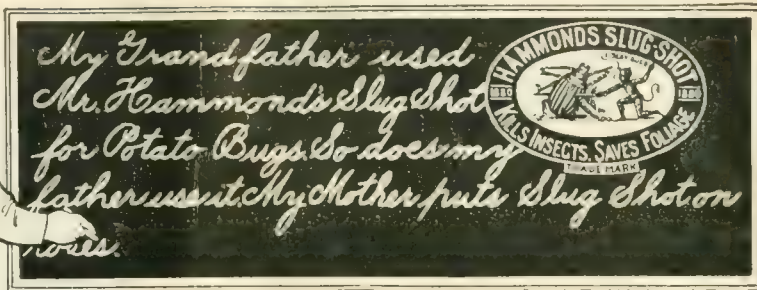 My Grandfather used
Mr. Hammond's Slug Shot
for Potato Bugs. So does my
father use it My Mother puts Slug Shot on
roses.
HAMMONDS SLUG-SHOT
1880
KILLS INSECTS, SAVES FOLIAGE
TRADE MARK